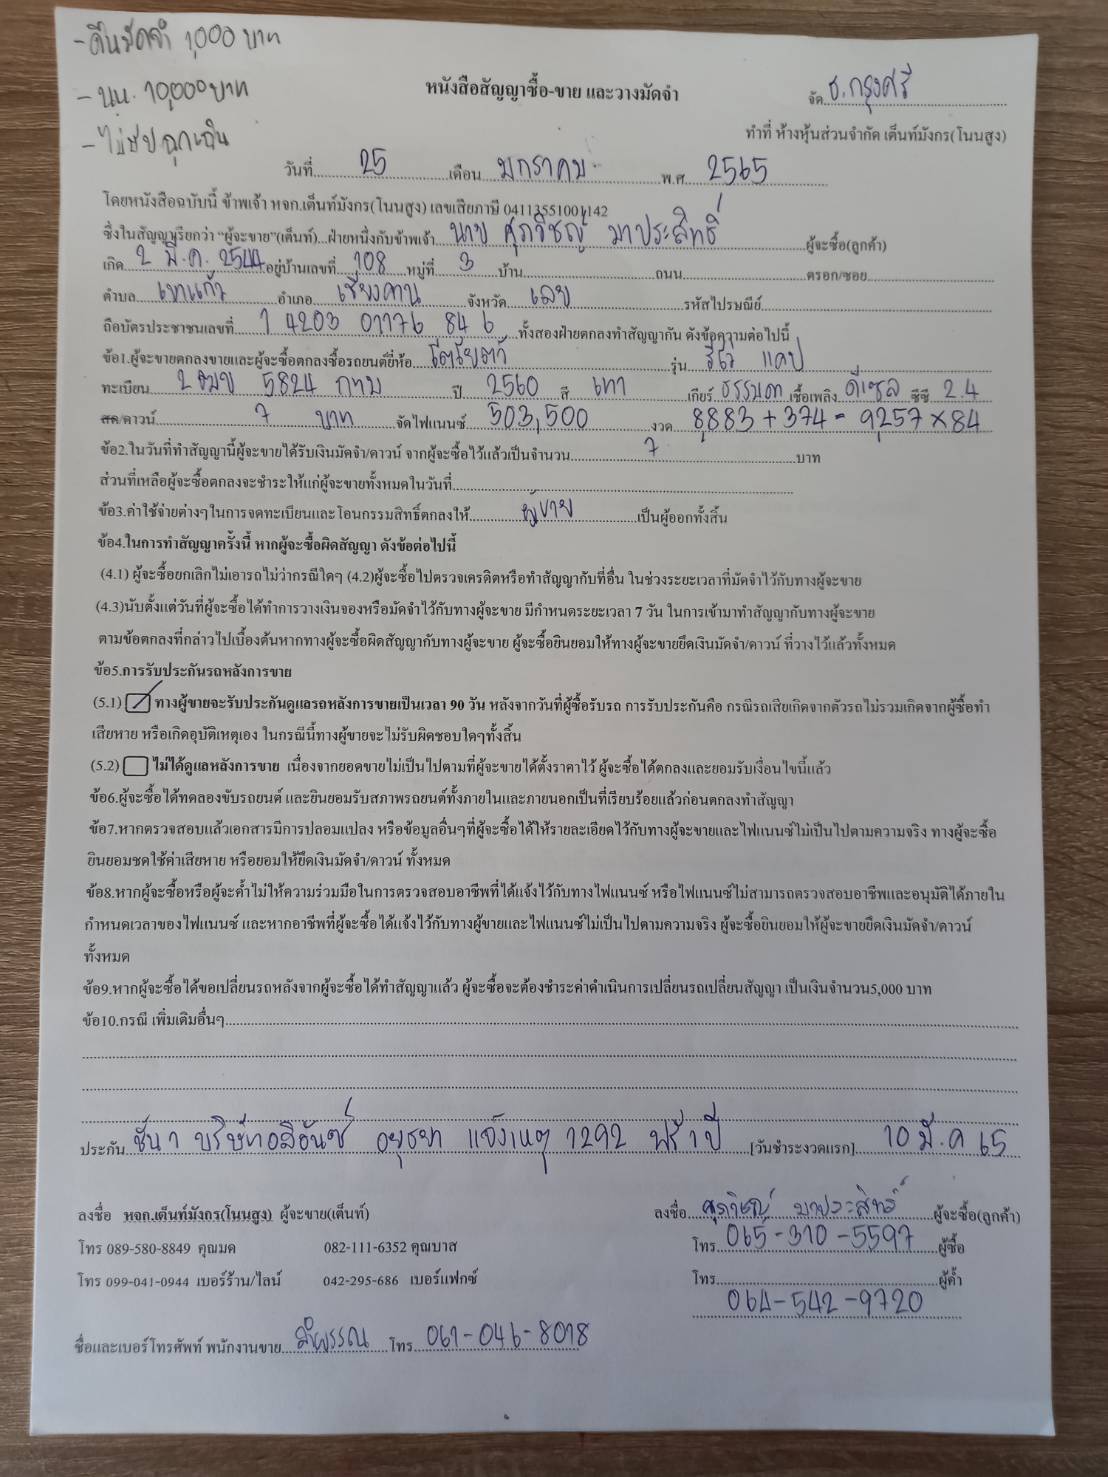 - คืนมัดจำ 1,000 บาท
- นน. 10,000 บาท
- ไม่ชัป ฉุกเฉิน
หนังสือสัญญาซื้อ-ขาย และวางมัดจำ
จัด ธ.กรุงศรี
ทำที่ ห้างหุ้นส่วนจำกัด เต็นท์มังกร(โนนสูง)
วันที่ 25 เดือน มกราคม พ.ศ 2565
โดยหนังสือฉบับนี้ ข้าพเจ้า หจก.เต็นท์มังกร(โนนสูง) เลขเสียภาษี 04113551001142
ซึ่งในสัญญาเรียกว่า "ผู้จะขาย"(เต็นท์)...ฝ่ายหนึ่งกับข้าพเจ้า นาย ศุภวิชญ์ มาประสิทธิ์ ผู้จะซื้อ(ลูกค้า)
เกิด 2 มี.ค. 2544 อยู่บ้านเลขที่ 108 หมู่ที่ 3 บ้าน ถนน ตรอก/ซอย
ตำบล เขาแก้ว อำเภอ เชียงคาน จังหวัด เลย รหัสไปรษณีย์
ถือบัตรประชาชนเลขที่ 1 4203 01176 84 6 ทั้งสองฝ่ายตกลงทำสัญญากัน ดังข้อความต่อไปนี้
ข้อ1.ผู้จะขายตกลงขายและผู้จะซื้อตกลงซื้อรถยนต์ยี่ห้อ โตโยต้า รุ่น รีโว่ แคป
ทะเบียน 2ฒข 5824 กทม ปี 2560 สี เทา เกียร์ ธรรมดา เชื้อเพลิง ดีเซล ซีซี 2.4
สด/ดาวน์ 7 บาท จัดไฟแนนซ์ 503,500 งวด 8,883 + 374 = 9,257 x 84
ข้อ2.ในวันที่ทำสัญญานี้ผู้จะขายได้รับเงินมัดจำ/ดาวน์ จากผู้จะซื้อไว้แล้วเป็นจำนวน 7 บาท
ส่วนที่เหลือผู้จะซื้อตกลงจะชำระให้แก่ผู้จะขายทั้งหมดในวันที่
ข้อ3.ค่าใช้จ่ายต่างๆในการจดทะเบียนและโอนกรรมสิทธิ์ตกลงให้ ผู้ขาย เป็นผู้ออกทั้งสิ้น
ข้อ4.ในการทำสัญญาครั้งนี้ หากผู้จะซื้อผิดสัญญา ดังข้อต่อไปนี้
(4.1) ผู้จะซื้อยกเลิกไม่เอารถไม่ว่ากรณีใดๆ (4.2)ผู้จะซื้อไปตรวจเครดิตหรือทำสัญญากับที่อื่น ในช่วงระยะเวลาที่มัดจำไว้กับทางผู้จะขาย
(4.3)นับตั้งแต่วันที่ผู้จะซื้อได้ทำการวางเงินจองหรือมัดจำไว้กับทางผู้จะขาย มีกำหนดระยะเวลา 7 วัน ในการเข้ามาทำสัญญากับทางผู้จะขาย
ตามข้อตกลงที่กล่าวไปเบื้องต้นหากทางผู้จะซื้อผิดสัญญากับทางผู้จะขาย ผู้จะซื้อยินยอมให้ทางผู้จะขายยึดเงินมัดจำ/ดาวน์ ที่วางไว้แล้วทั้งหมด
ข้อ5.การรับประกันรถหลังการขาย
(5.1) ทางผู้ขายจะรับประกันดูแลรถหลังการขายเป็นเวลา 90 วัน หลังจากวันที่ผู้ซื้อรับรถ การรับประกันคือ กรณีรถเสียเกิดจากตัวรถไม่รวมเกิดจากผู้ซื้อทำ
เสียหาย หรือเกิดอุบัติเหตุเอง ในกรณีนี้ทางผู้ขายจะไม่รับผิดชอบใดๆทั้งสิ้น
(5.2) ไม่ได้ดูแลหลังการขาย เนื่องจากยอดขายไม่เป็นไปตามที่ผู้จะขายได้ตั้งราคาไว้ ผู้จะซื้อได้ตกลงและยอมรับเงื่อนไขนี้แล้ว
ข้อ6.ผู้จะซื้อได้ทดลองขับรถยนต์ และยินยอมรับสภาพรถยนต์ทั้งภายในและภายนอกเป็นที่เรียบร้อยแล้วก่อนตกลงทำสัญญา
ข้อ7.หากตรวจสอบแล้วเอกสารมีการปลอมแปลง หรือข้อมูลอื่นๆที่ผู้จะซื้อได้ให้รายละเอียดไว้กับทางผู้จะขายและไฟแนนซ์ไม่เป็นไปตามความจริง ทางผู้จะซื้อ
ยินยอมชดใช้ค่าเสียหาย หรือยอมให้ยึดเงินมัดจำ/ดาวน์ ทั้งหมด
ข้อ8.หากผู้จะซื้อหรือผู้จะค้ำไม่ให้ความร่วมมือในการตรวจสอบอาชีพที่ได้แจ้งไว้กับทางไฟแนนซ์ หรือไฟแนนซ์ไม่สามารถตรวจสอบอาชีพและอนุมัติได้ภายใน
กำหนดเวลาของไฟแนนซ์ และหากอาชีพที่ผู้จะซื้อได้แจ้งไว้กับทางผู้ขายและไฟแนนซ์ไม่เป็นไปตามความจริง ผู้จะซื้อยินยอมให้ผู้จะขายยึดเงินมัดจำ/ดาวน์
ทั้งหมด
ข้อ9.หากผู้จะซื้อได้ขอเปลี่ยนรถหลังจากผู้จะซื้อได้ทำสัญญาแล้ว ผู้จะซื้อจะต้องชำระค่าดำเนินการเปลี่ยนรถเปลี่ยนสัญญา เป็นเงินจำนวน5,000 บาท
ข้อ10.กรณี เพิ่มเติมอื่นๆ
ประกัน ชั้น 1 บริษัทอลิอันซ์ อยุธยา แจ้งเหตุ 1292 ฟรี 1 ปี [วันชำระงวดแรก] 10 มี.ค 65
ลงชื่อ หจก.เต็นท์มังกร(โนนสูง) ผู้จะขาย(เต็นท์) ลงชื่อ ศุภวิชญ์ มาประสิทธิ์ ผู้จะซื้อ(ลูกค้า)
โทร 089-580-8849 คุณมด 082-111-6352 คุณบาส โทร 065-310-5597 ผู้ซื้อ
โทร 099-041-0944 เบอร์ร้าน/ไลน์ 042-295-686 เบอร์แฟกซ์ โทร ผู้ค้ำ
064-542-9720
ชื่อและเบอร์โทรศัพท์ พนักงานขาย ลำพรรณ โทร 061-046-8018